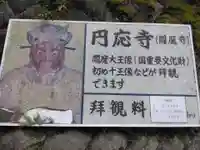 円応寺(閻魔寺)
閻魔大王像(国重要文化財)
初め十王像などが拝観
できます
拝観料